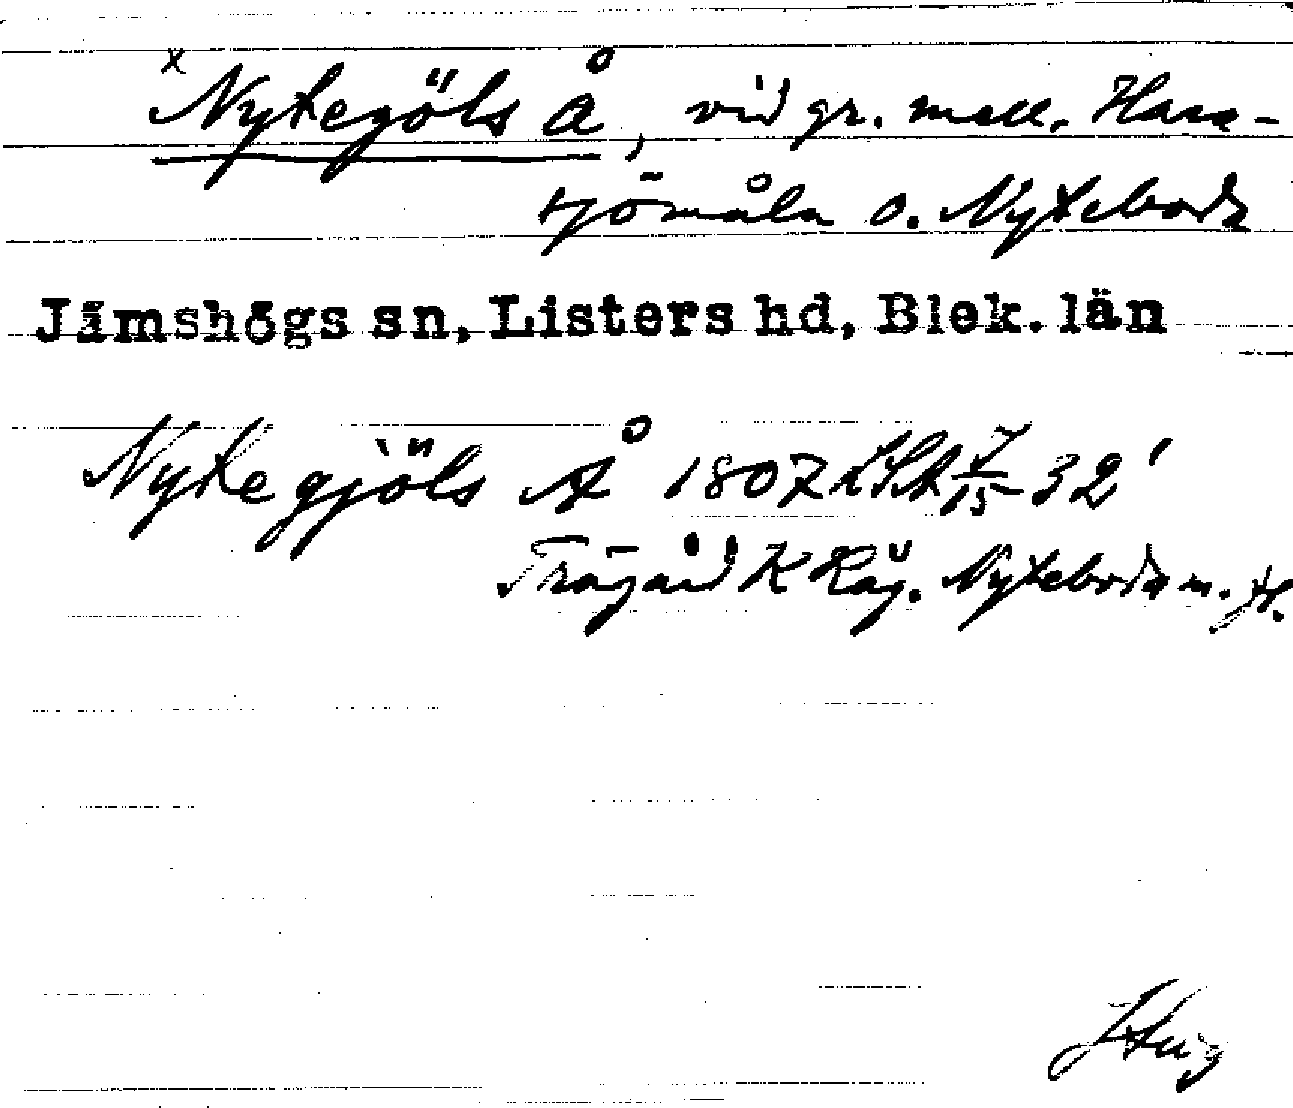 x Nytegöls å, vid gr. mell. Hara-
sjömåla o. Nyteboda
Jämshögs sn, Listers hd, Blek. län
Nytegjöls Å 1807 LSA 7/15 32'
Trågård K Räg. Nyteboda n. H.